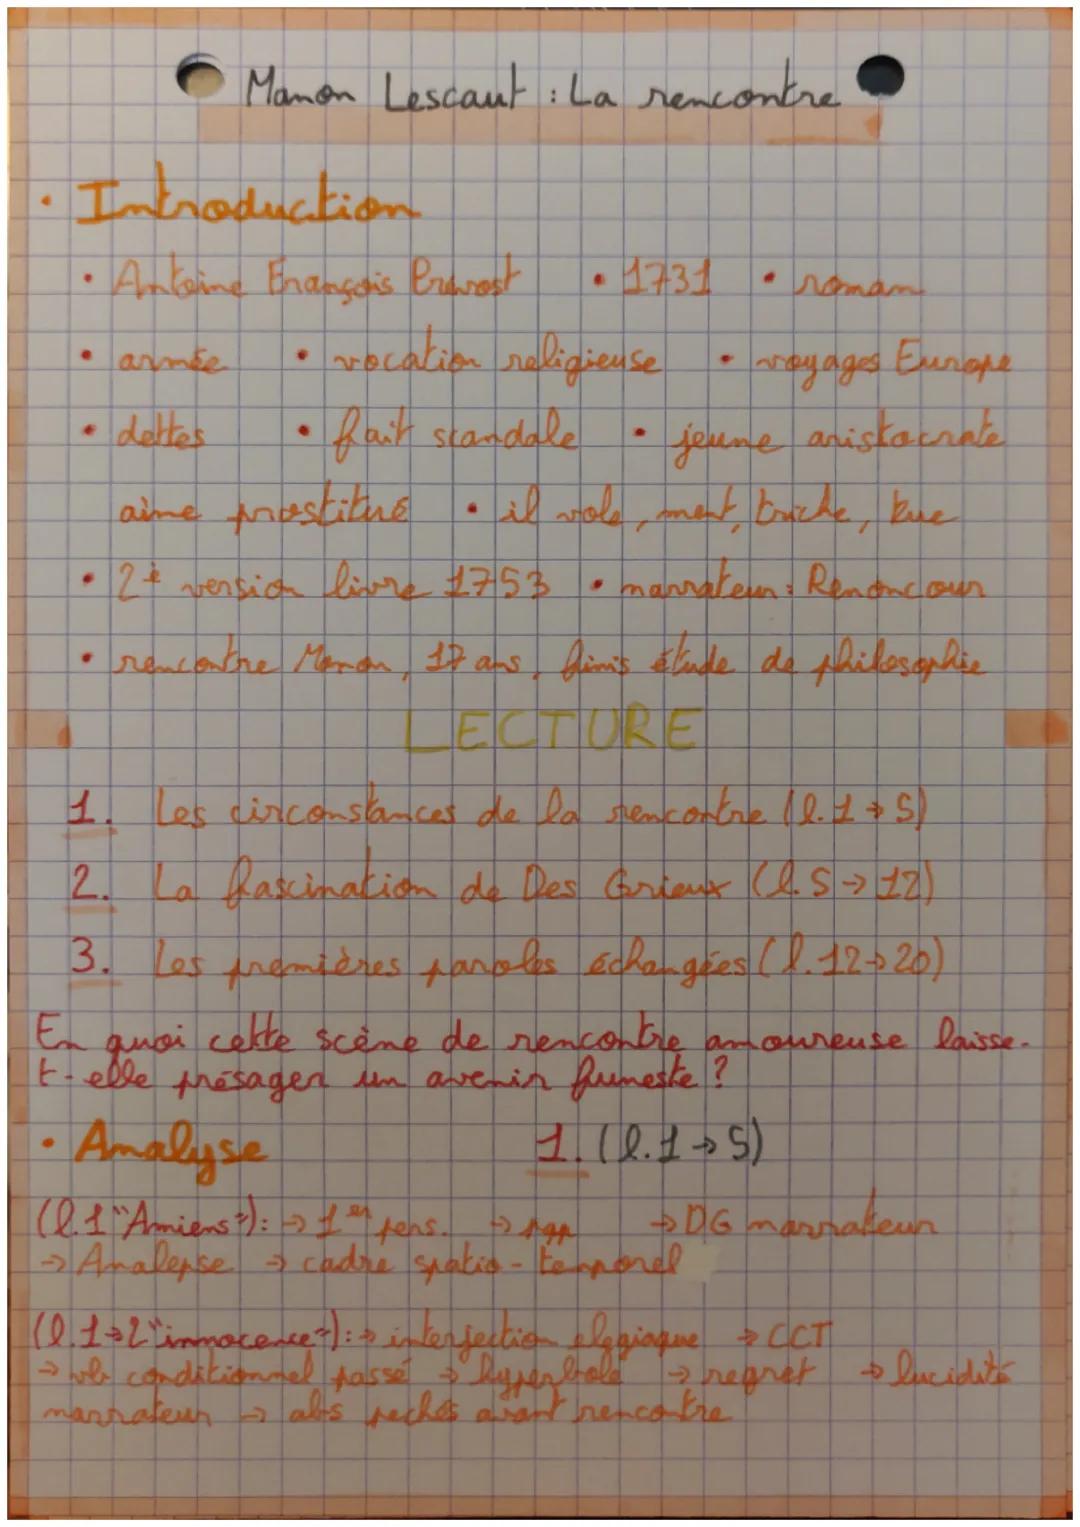 Manon Lescaut : La rencontre
• Introduction
• Antoine François Prévost • 1731 • roman
• armée • vocation religieuse • voyages Europe
• dettes • fait scandale • jeune aristocrate
aime prostitué • il vole, ment, triche, tue
• 2è version livre 1753 • narrateur : Renoncour
• rencontre Manon, 17 ans, finis étude de philosophie
LECTURE
1. Les circonstances de la rencontre (l.1 → 5)
2. La fascination de Des Grieux (l.5 → 12)
3. Les premières paroles échangées (l.12 → 20)
En quoi cette scène de rencontre amoureuse laisse-
t-elle présager un avenir funeste ?
• Analyse 1. (l.1 → 5)
(l.1 "Amiens"): → 1er pers. → pqp → DG narrateur
→ Analepse → cadre spatio-temporel
(l.1→2 "innocence"): → interjection élégiaque → CCT
→ vb conditionnel passé → hyperbole → regret → lucidité
narrateur → abs pechés avant rencontre